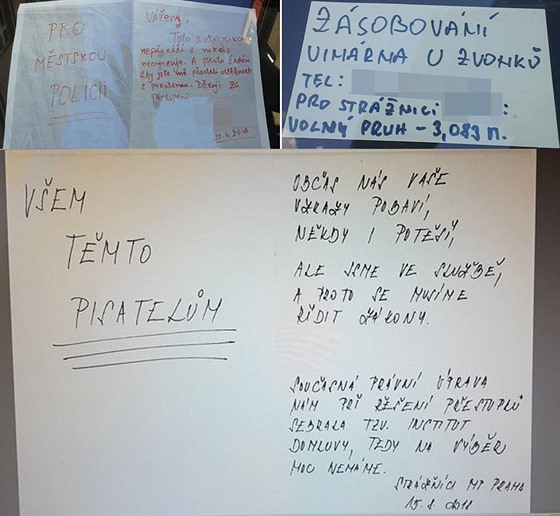 PRO
MĚSTSKOU
POLICII
Vážený,
Toto auto nikomu
nepřekáží a nikoho
neomezuje. A proto žádám
aby jste mě přestali otěžovat
s pokutama. Děkuji za
pochopení.
10.4.2018
ZÁSOBOVÁNÍ
VINÁRNA U ZVONKŮ
TEL:
PRO STRÁŽNICI :
VOLNÝ PRUH – 3,083 m.
VŠEM
TĚMTO
PISATELŮM
OBČAS NÁS VAŠE
VZKAZY POBAVÍ,
NĚKDY I POTĚŠÍ,
ALE JSME VE SLUŽBĚ,
A PROTO SE MUSÍME
ŘÍDIT ZÁKONY.
SOUČASNÁ PRÁVNÍ ÚPRAVA
NÁM PŘI ŘEŠENÍ PŘESTUPKŮ
SEBRALA TZV. INSTITUT
DOMLUVY, TEDY NA VÝBĚR
MOC NEMÁME.
STRÁŽNÍCI MP PRAHA
2018